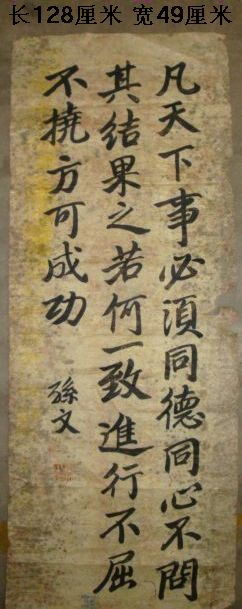 长128厘米 宽49厘米
凡天下事必須同德同心不問
其结果之若何一致進行不屈
不撓方可成功
孫文